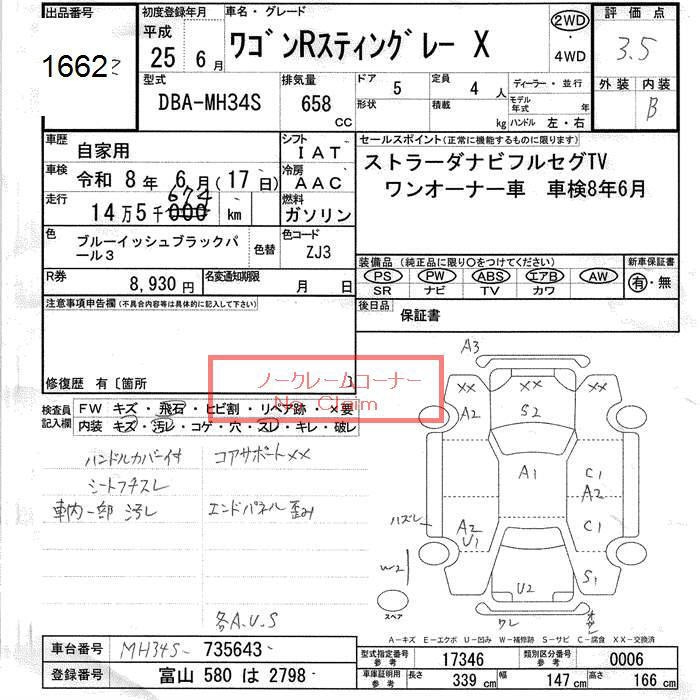 出品番号
1662
初度登録年月
平成
25 6月
車名・グレード
ワゴンRスティングレー X
2WD
・
4WD
評価点
3.5
外装 内装
B
型式
DBA-MH34S
排気量
658
CC
ドア 5
形状
定員 4 人
積載 kg
ディーラー・並行
モデル年式 年
ハンドル 左・右
車歴
自家用
シフト
IAT
車検
令和 8年 6月(17日)
冷房
AAC
走行
14万5千000 km
674
燃料
ガソリン
色
ブルーイッシュブラックパール3
色替
色コード
ZJ3
R券
8,930円
名変通知期限
月 日
セールスポイント(正常に機能するものに限ります)
ストラーダナビフルセグTV
ワンオーナー車 車検8年6月
装備品 (純正品に限り○をつけてください)
PS PW ABS エアB AW
SR ナビ TV カワ
新車保証書
有・無
後日品
保証書
注意事項申告欄(不具合内容等は具体的に記入して下さい)
修復歴 有〔箇所 〕
ノークレームコーナー
No Claim
検査員記入欄
FW キズ・飛石・ヒビ割・リペア跡・×要
内装 キズ・汚レ・コゲ・穴・スレ・キレ・破レ
ハンドルカバー付 コアサポートXX
シートフチスレ
車内一部汚レ エンドパネル歪み
各A.U.S
A3
XX XX XX
A2 S2
A1 C1
A2
ハズレ A2 C1
U1
W2 U2 S1
スペア
ワレ
A-キズ E-エクボ U-凹み W-補修跡 S-サビ C-腐食 XX-交換済
車台番号
MH34S-735643
登録番号
富山 580 は 2798
型式指定番号
参考
17346
類別区分番号
参考
0006
車庫証明用
参考
長さ 339 cm 幅 147 cm 高さ 166 cm